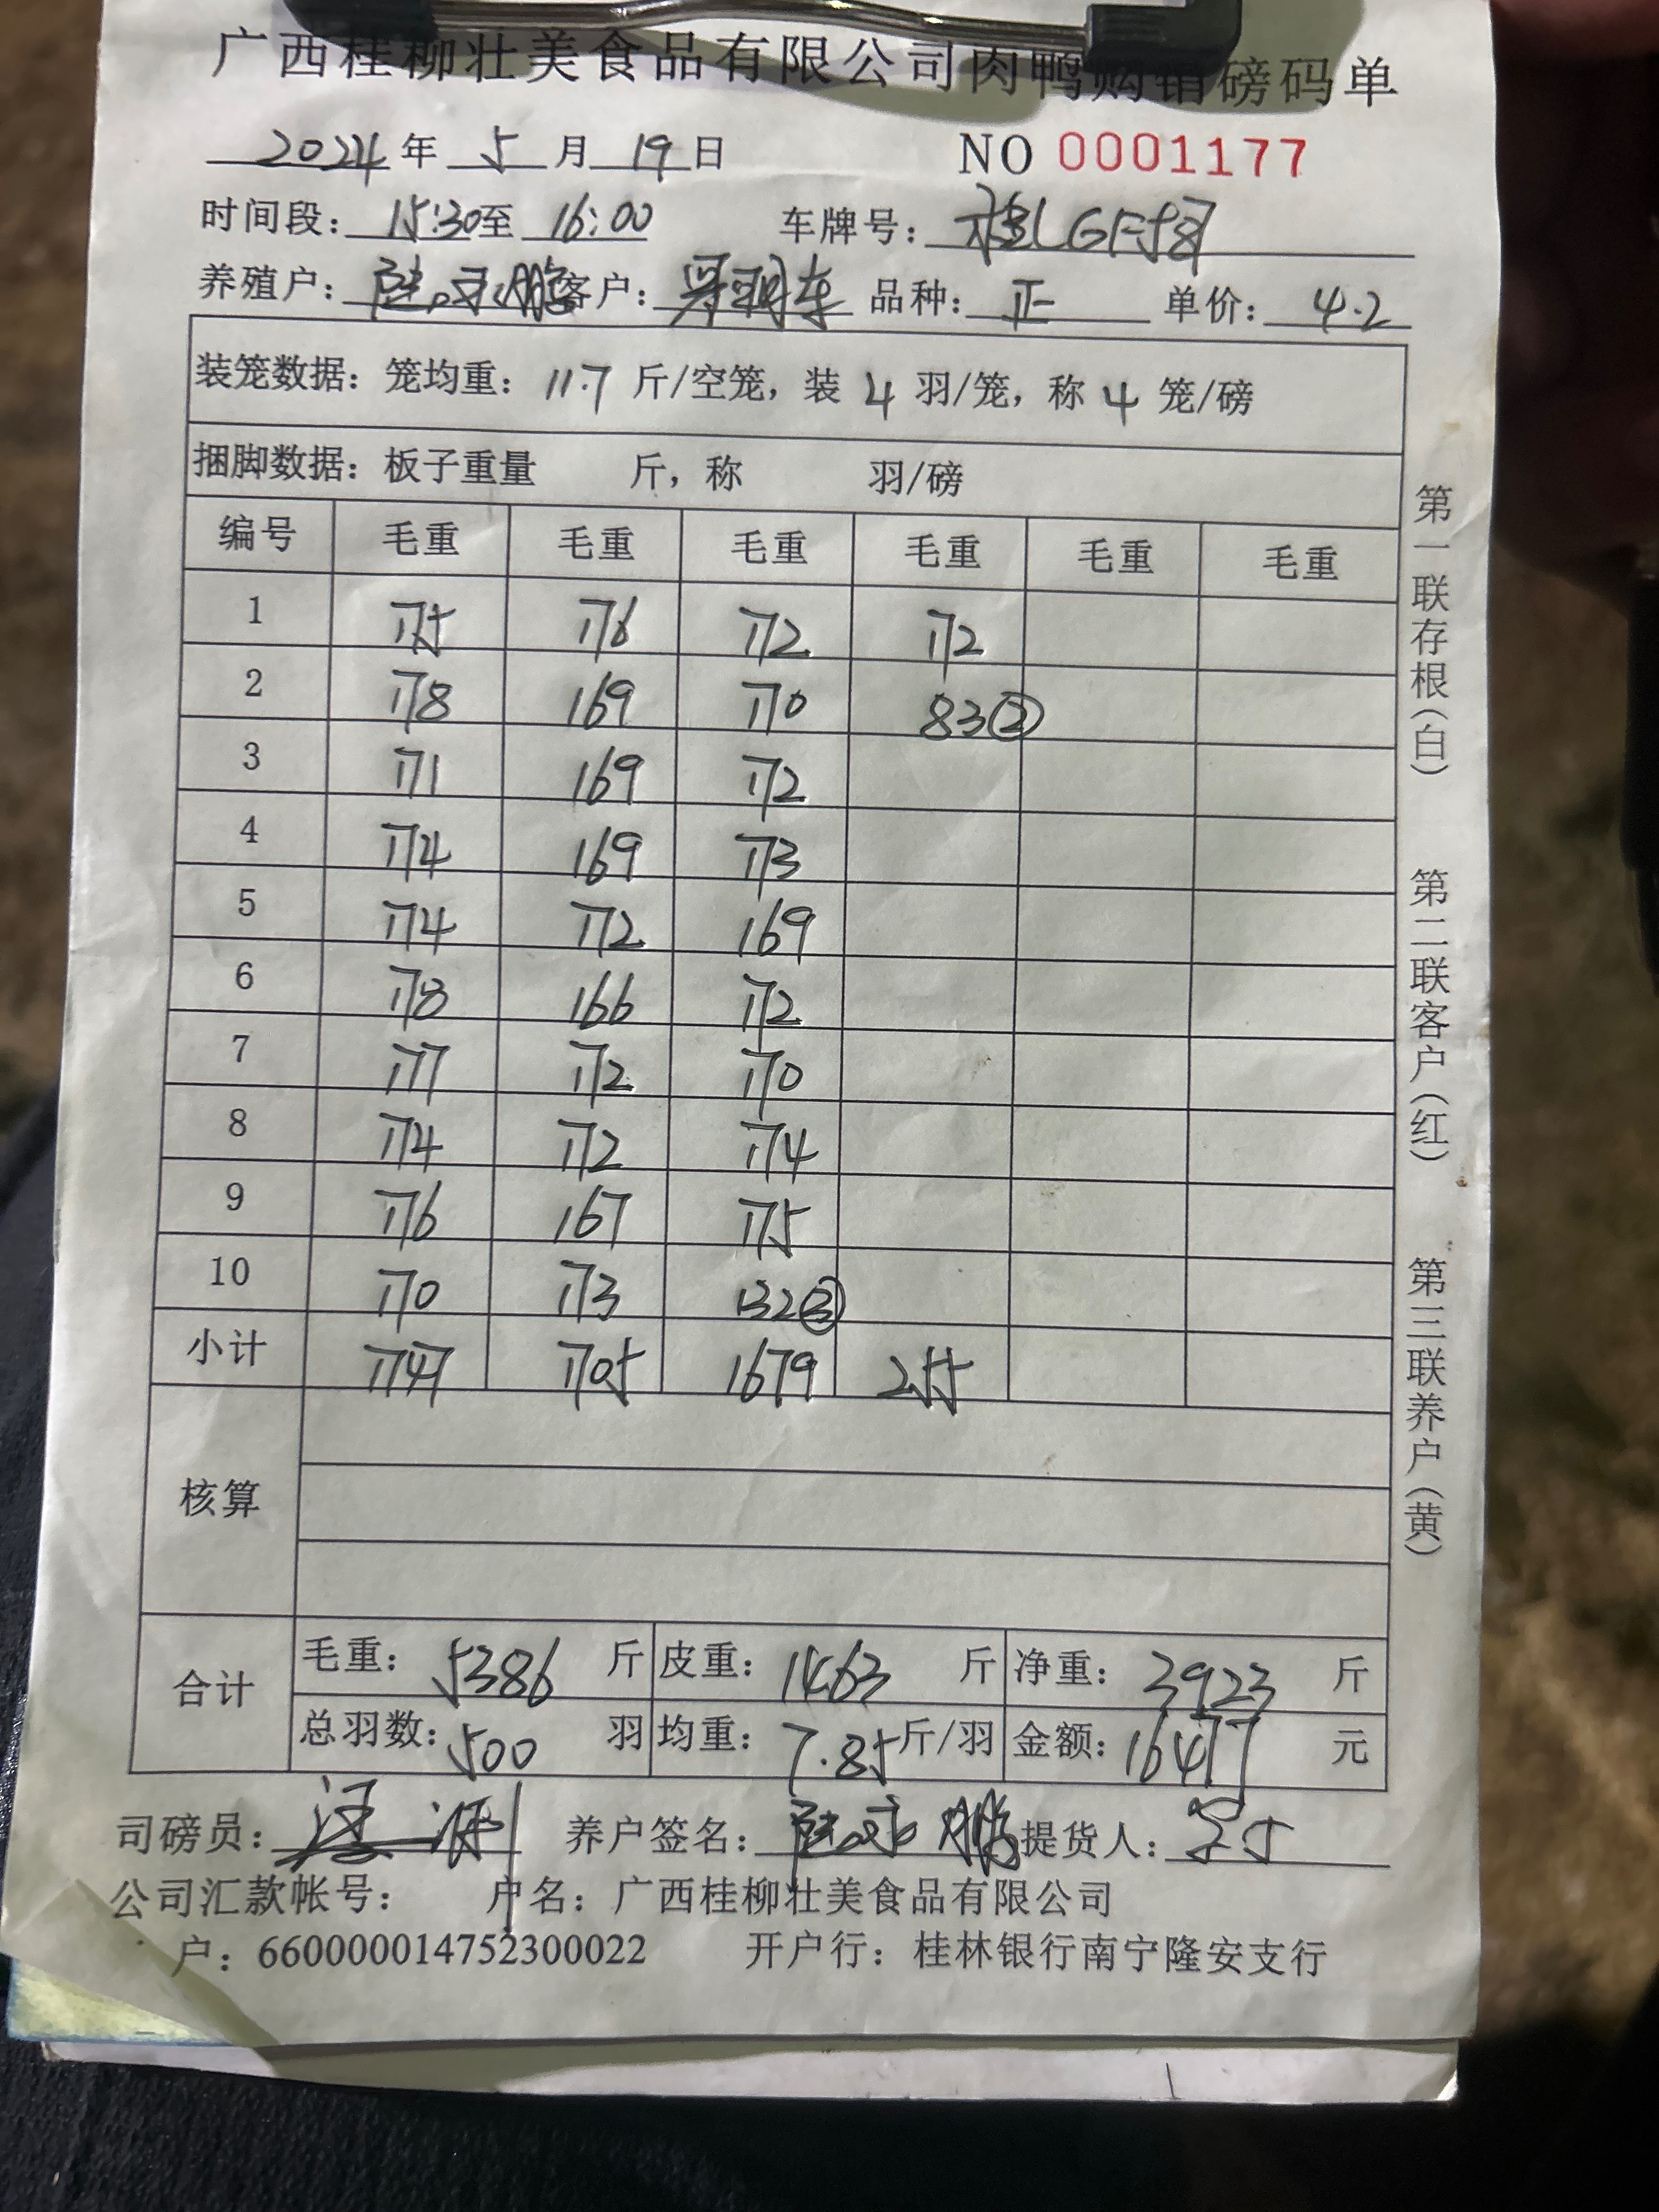 广西桂柳壮美食品有限公司肉鸭购销磅码单
2024年 5月19日 NO 0001177
时间段：15:30至 16:00 车牌号：桂LGF587
养殖户： 客户： 品种：正 单价：4.2
装笼数据：笼均重：11.7斤/空笼，装 4 羽/笼，称 4 笼/磅
捆脚数据：板子重量 斤，称 羽/磅
编号 毛重 毛重 毛重 毛重 毛重 毛重
1 175 176 172 172
2 178 169 170 83②
3 171 169 172
4 174 169 173
5 174 172 169
6 178 166 172
7 177 172 170
8 174 172 174
9 176 167 175
10 170 173 132③
小计 1747 1705 1679 255
核算
合计
毛重：5386 斤 皮重：1463 斤 净重：3923 斤
总羽数：500 羽 均重：7.85斤/羽 金额：16477 元
司磅员： 养户签名： 提货人：
公司汇款帐号： 户名：广西桂柳壮美食品有限公司
户：660000014752300022 开户行：桂林银行南宁隆安支行
第一联存根（白） 第二联客户（红） 第三联养户（黄）